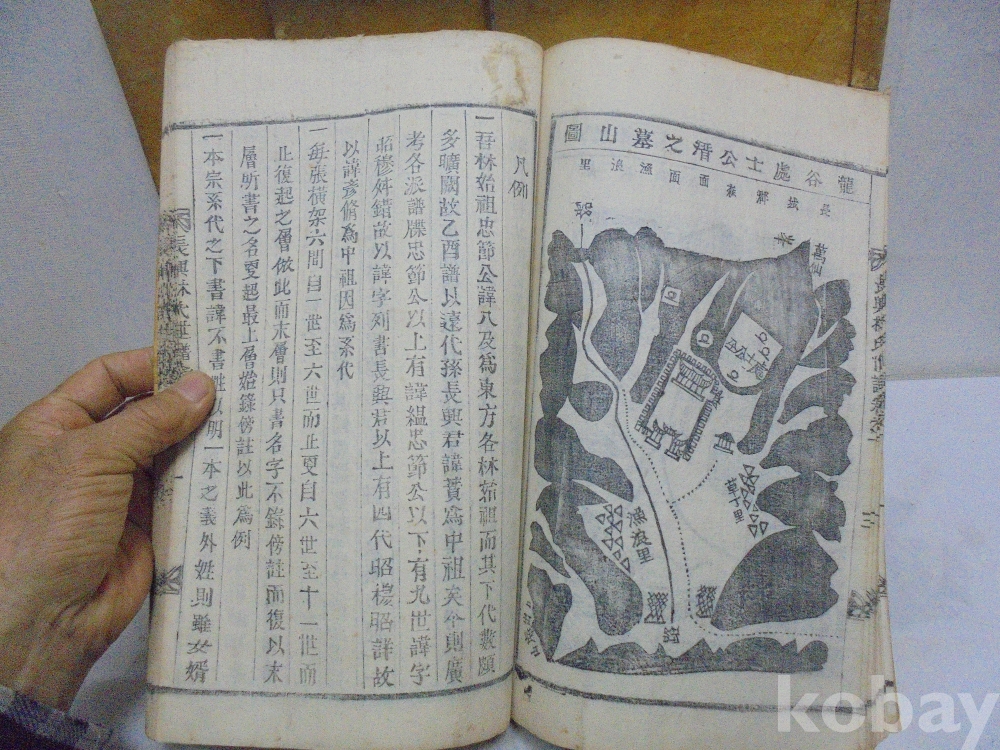 龍谷處士公潛之墓山圖
長城郡森西面漁浪里
萬山
漁浪里
長興林氏世譜卷之一
凡例
一吾林始祖忠節公諱八及爲東方各林始祖而其下代數頗
多曠闕故乙酉譜以遠代孫長興君諱蕡爲中祖矣今則廣
考各派譜牒忠節公以上有諱緼忠節公以下有九世諱字
昭穆舛錯故以諱字列書長興君以上有四代昭穆昭詳故
以諱彦脩爲中祖因爲系代
一每張橫架六間自一世至六世而止更自六世至十一世而
止復起之層倣此而末層則只書名字不錄傍註而復以末
層所書之名更起最上層始錄傍註以此爲例
一本宗系代之下書諱不書姓以明一本之義外姓則雖女婿
長興林氏世譜
kobay